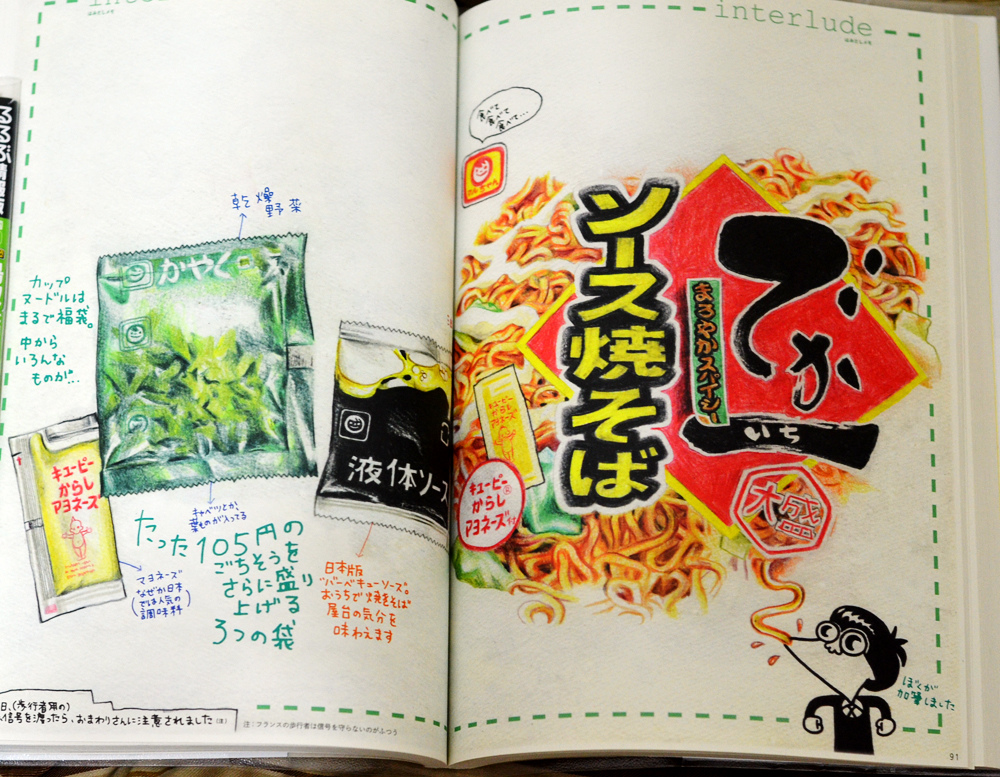 interlude
はみだしメモ
るるぶ情報版
乾燥
野菜
カップ
ヌードルは
まるで福袋。
中から
いろんな
ものが…
かやく
キューピー
からし
マヨネーズ
液体ソース
キャベツとか、
葉ものが入ってる
マヨネーズ
なぜか日本
では人気の
調味料
たった105円の
ごちそうを
さらに盛り
上げる
3つの袋
日本版
"バーベキューソース"。
おうちで焼きそば
屋台の気分を
味わえます
日、(歩行者用の)
信号を渡ったら、おまわりさんに注意されました(注)
注:フランスの歩行者は信号を守らないのがふつう
interlude
食べて
食べて
食べて…
マルちゃん
ソース焼そば
でか
まろやかスパイシー
いち
大盛
キューピー
からし
マヨネーズ
キューピー
からし
マヨネーズ付
ぼくが
加筆しました
91